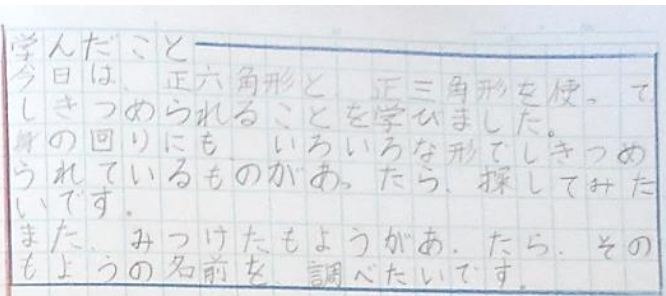 学んだこと
今日は、正六角形と、正三角形を使って
しきつめられることを学びました。
身の回りにも、いろいろな形でしきつめ
られているものがあったら、探してみた
いです。
また、みつけたもようがあったら、その
もようの名前を、調べたいです。